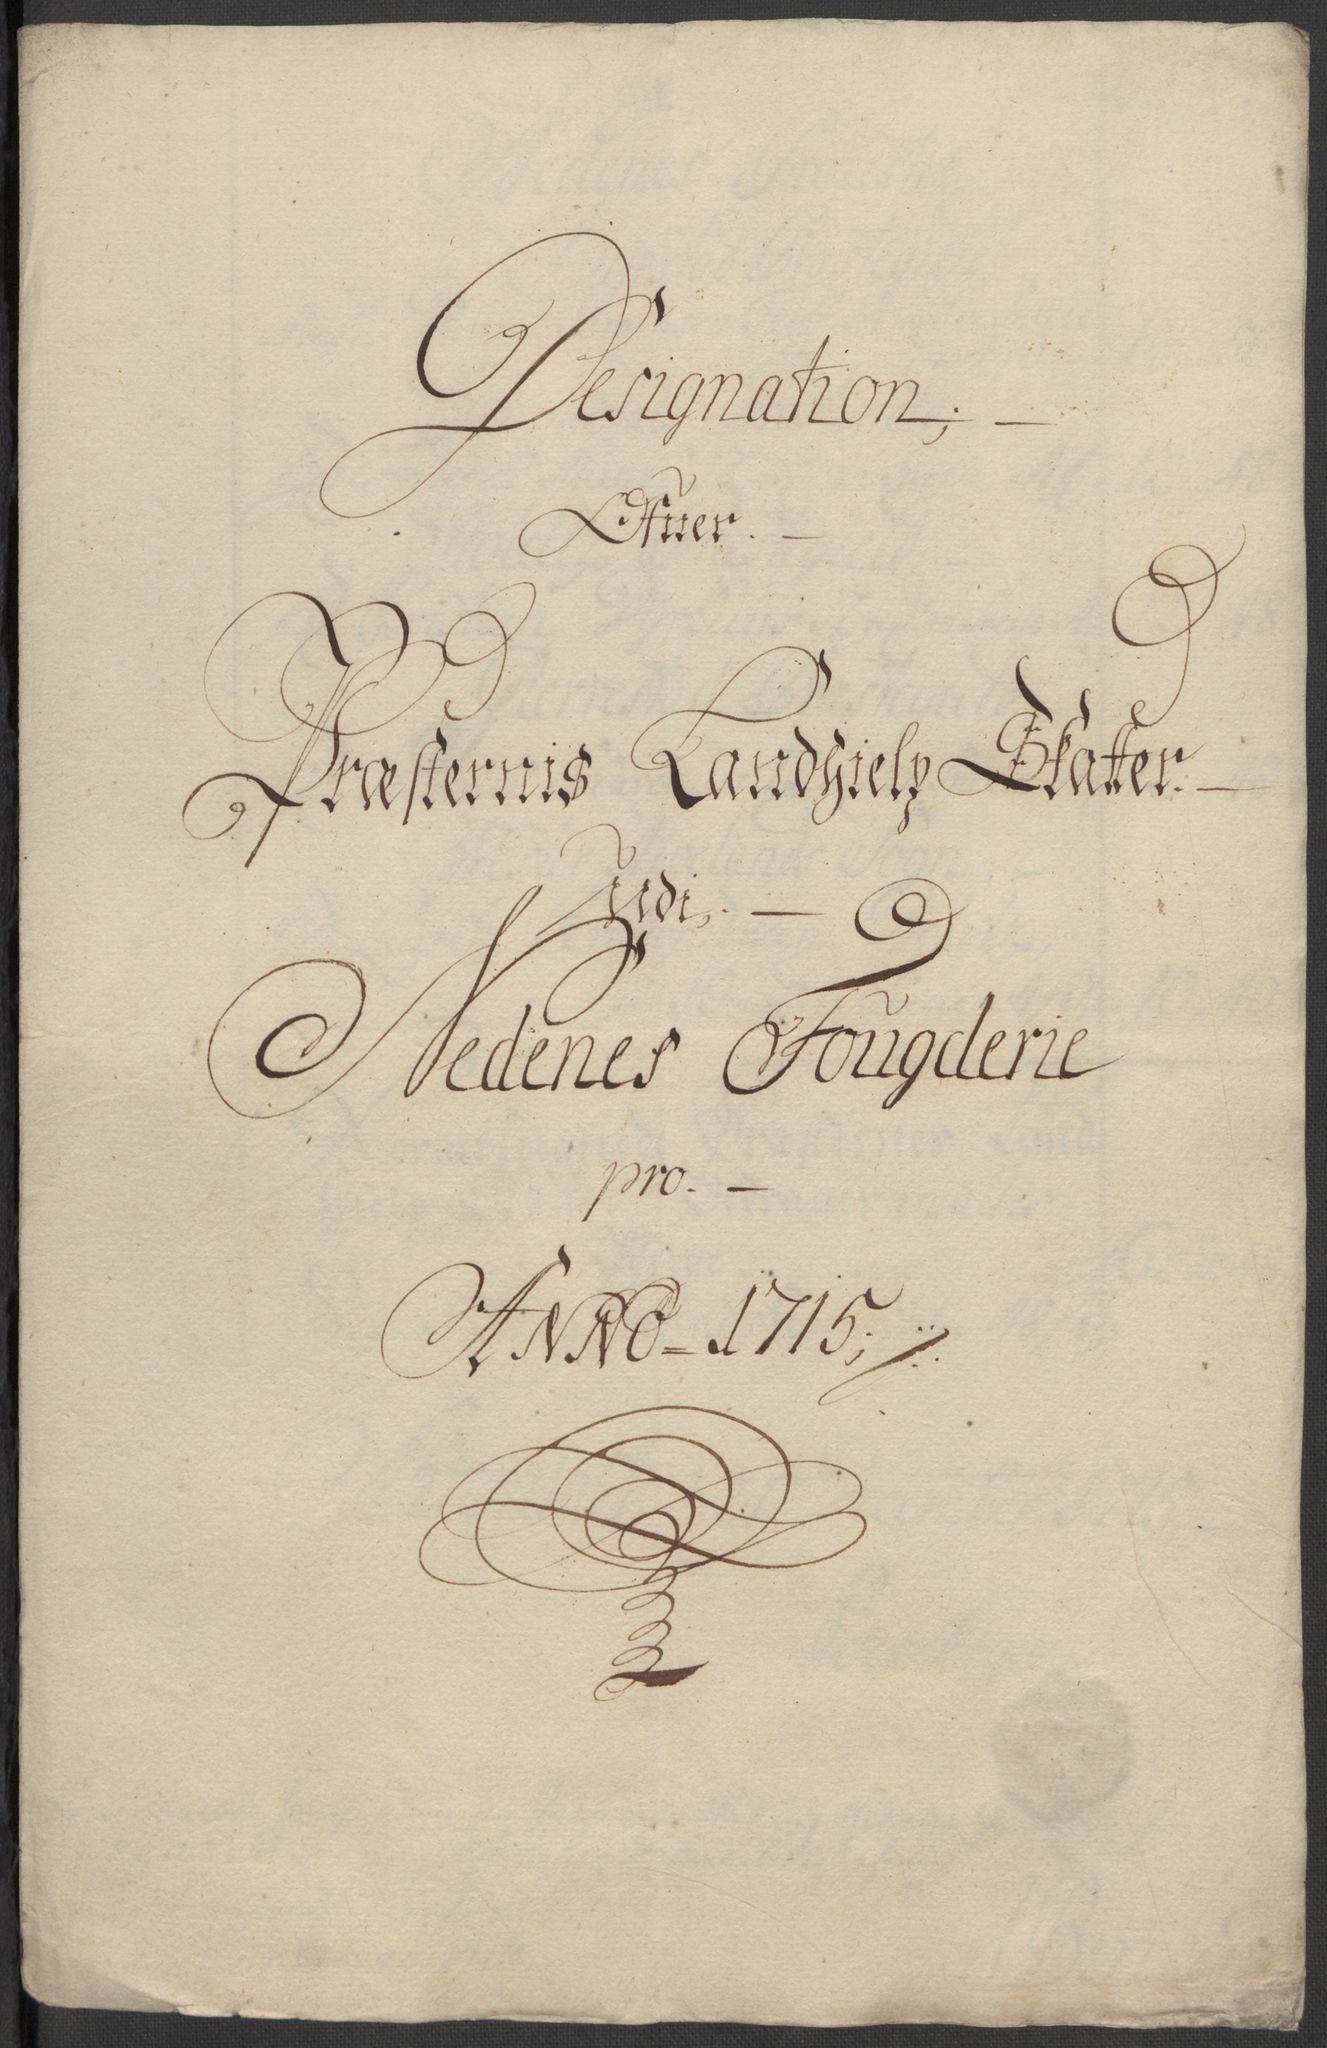 Designation;
Ofuer.
Præsternis Landhielp Skatter.
Udi,.
Nedenes Fougderie
pro.
ANNO = 1715;